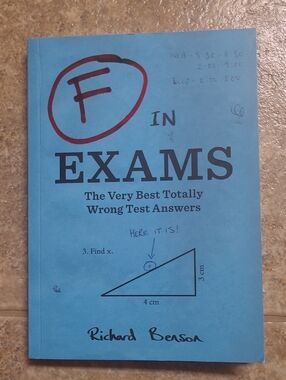 F
IN
EXAMS
The Very Best Totally
Wrong Test Answers
HERE IT IS!
3. Find x.
3 cm
4 cm
Richard Benson